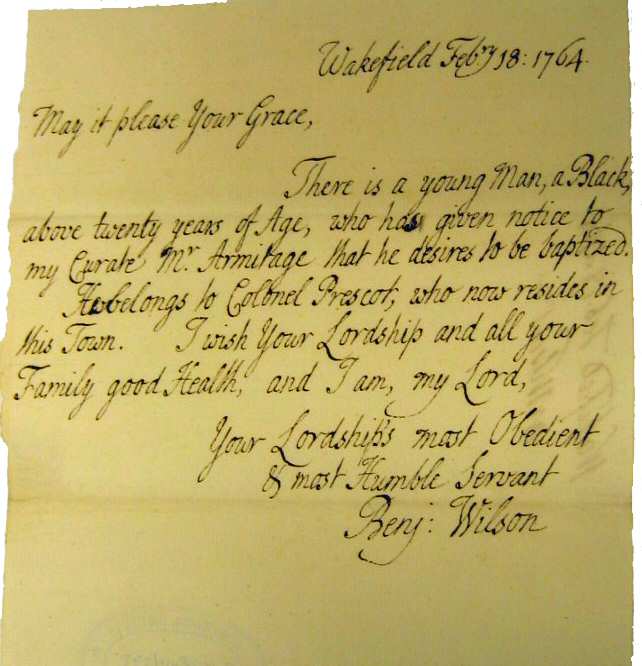 Wakefield Feb.ry 18: 1764.
May it please Your Grace,
There is a young Man, a Black,
above twenty years of Age, who has given notice to
my Curate Mr Armitage that he desires to be baptized.
He belongs to Colonel Prescot, who now resides in
this Town. I wish Your Lordship and all your
Family good Health, and I am, my Lord,
Your Lordship's most Obedient
& most Humble Servant
Benj: Wilson